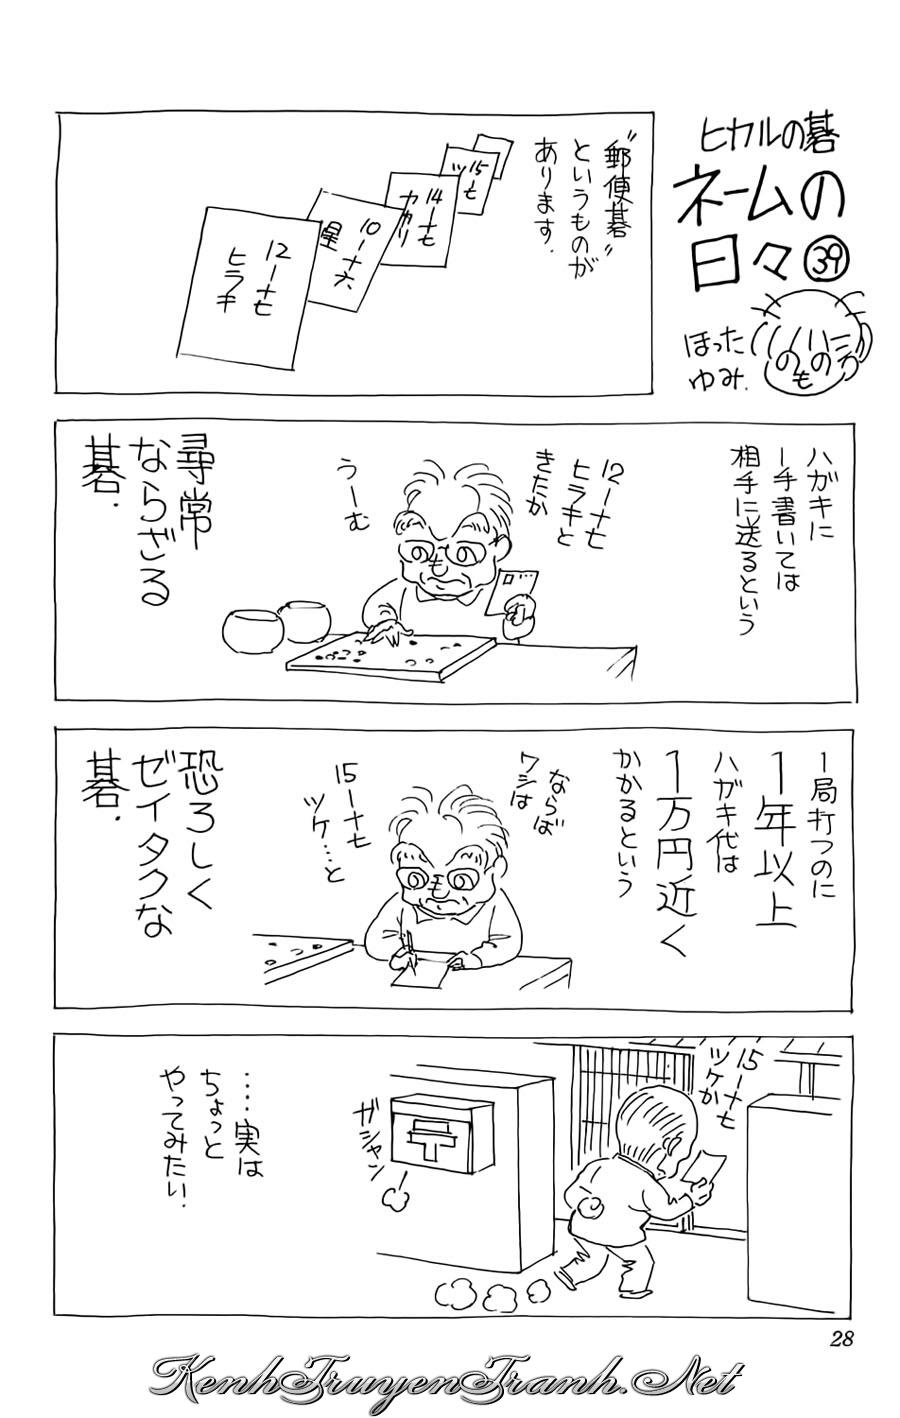 ヒカルの碁
ネームの
日々㊴
ほった
ゆみ.
"郵便碁"
というものが
あります.
15ー七
ツ
14ー七
カカリ
10ー十六
星
12ー十七
ヒラキ
ハガキに
一手書いては
相手に送るという
12ー十七
ヒラキと
きたか
うーむ
尋常
ならざる
碁.
1局打つのに
1年以上
ハガキ代は
1万円近く
かかるという
ならば
ワシは
15ー十七
ツケ…と
恐ろしく
ゼイタクな
碁.
15ー十七
ツケか
ガシャン
……実は
ちょっと
やってみたい.
28
KenhTruyenTranh.Net